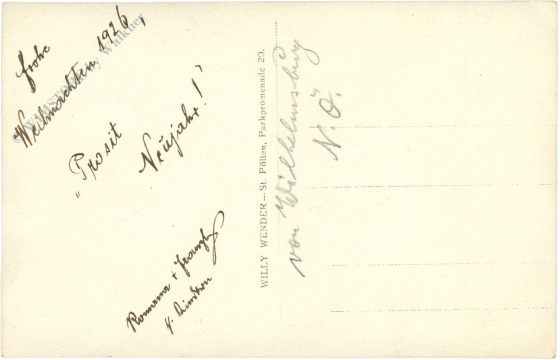 Frohe
Weihnachten 1926,
"Prosit
Neujahr!"
Romana +
u.
WILLY WENDER — St. Pölten, Parkpromenade 20.
von Wilhelmsburg
N.Ö.